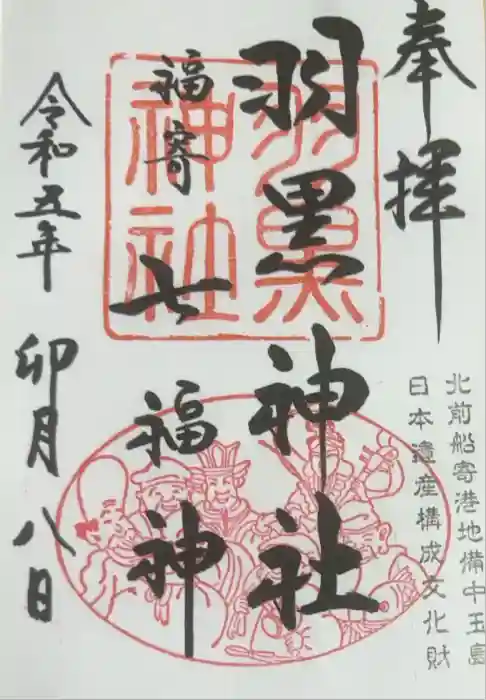 奉拝
北前船寄港地備中玉島
日本遺産構成文化財
羽黒神社
羽黒
神社
福寄
七福神
令和五年
卯月八日